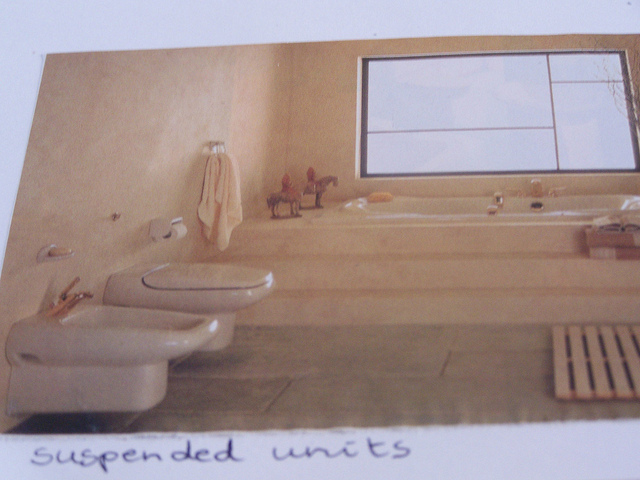 suspended units